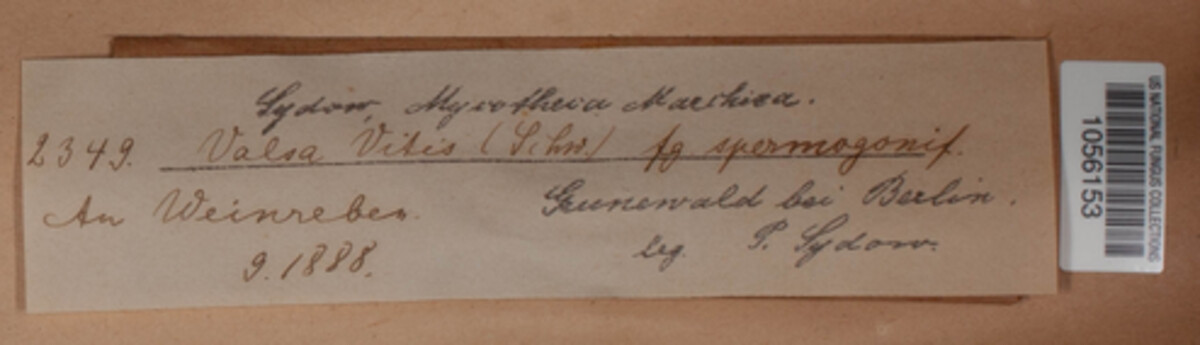 Sydow, Mycotheca Marchica.
2349. Valsa Vitis (Schw.) fg spermogonif.
An Weinreben. Grunewald bei Berlin.
9.1888. leg. P. Sydow.
US NATIONAL FUNGUS COLLECTIONS
1056153